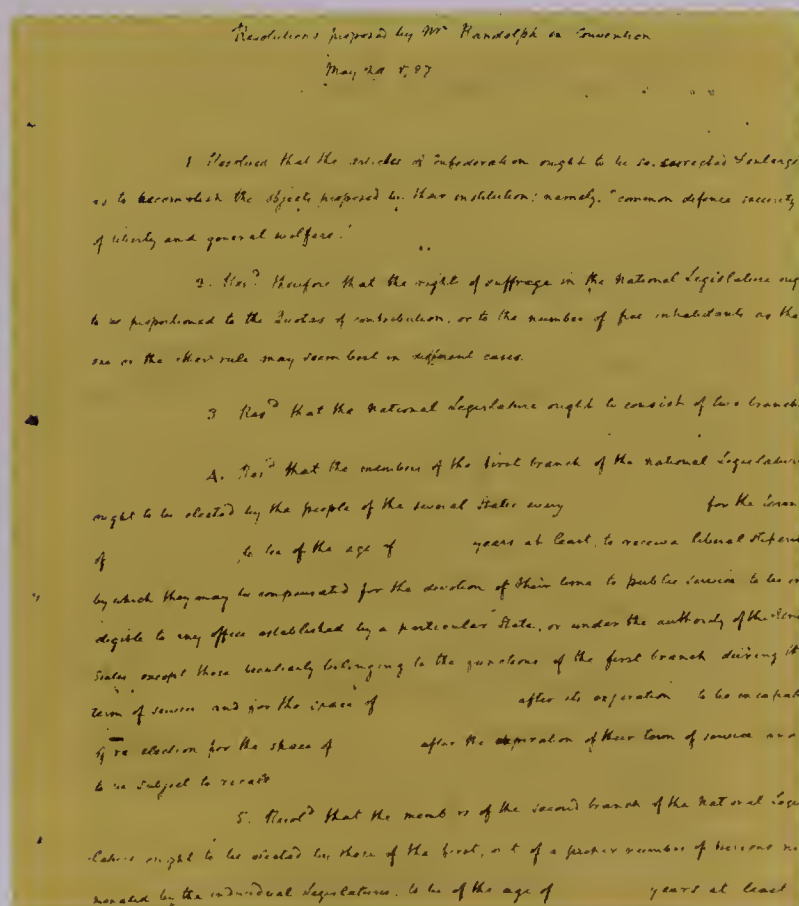 Resolutions proposed by Mr Randolph in Convention
May 29 1787
1 Resolved that the articles of Confederation ought to be so corrected & enlarge
as to accomplish the objects proposed by their institution; namely, "common defence security
of liberty and general welfare."
2. Resd therefore that the right of suffrage in the National Legislature oug
to be proportioned to the Quotas of contribution, or to the number of free inhabitants as the
one or the other rule may seem best in different cases.
3 Resd that the National Legislature ought to consist of two branch
4. Resd that the members of the first branch of the National Legislature
ought to be elected by the people of the several States every for the term
of to be of the age of years at least, to receive liberal stipen
by which they may be compensated for the devotion of their time to public service to be in
eligible to any office established by a particular State, or under the authority of the
States except those peculiarly belonging to the functions of the first branch during
term of service and for the space of after its expiration to be incapab
of re election for the space of after the expiration of their term of service and
to be subject to recall
5. Resold that the members of the second branch of the National Legis
lature ought to be elected by those of the first, out of a proper number of persons no
minated by the individual Legislatures, to be of the age of years at least